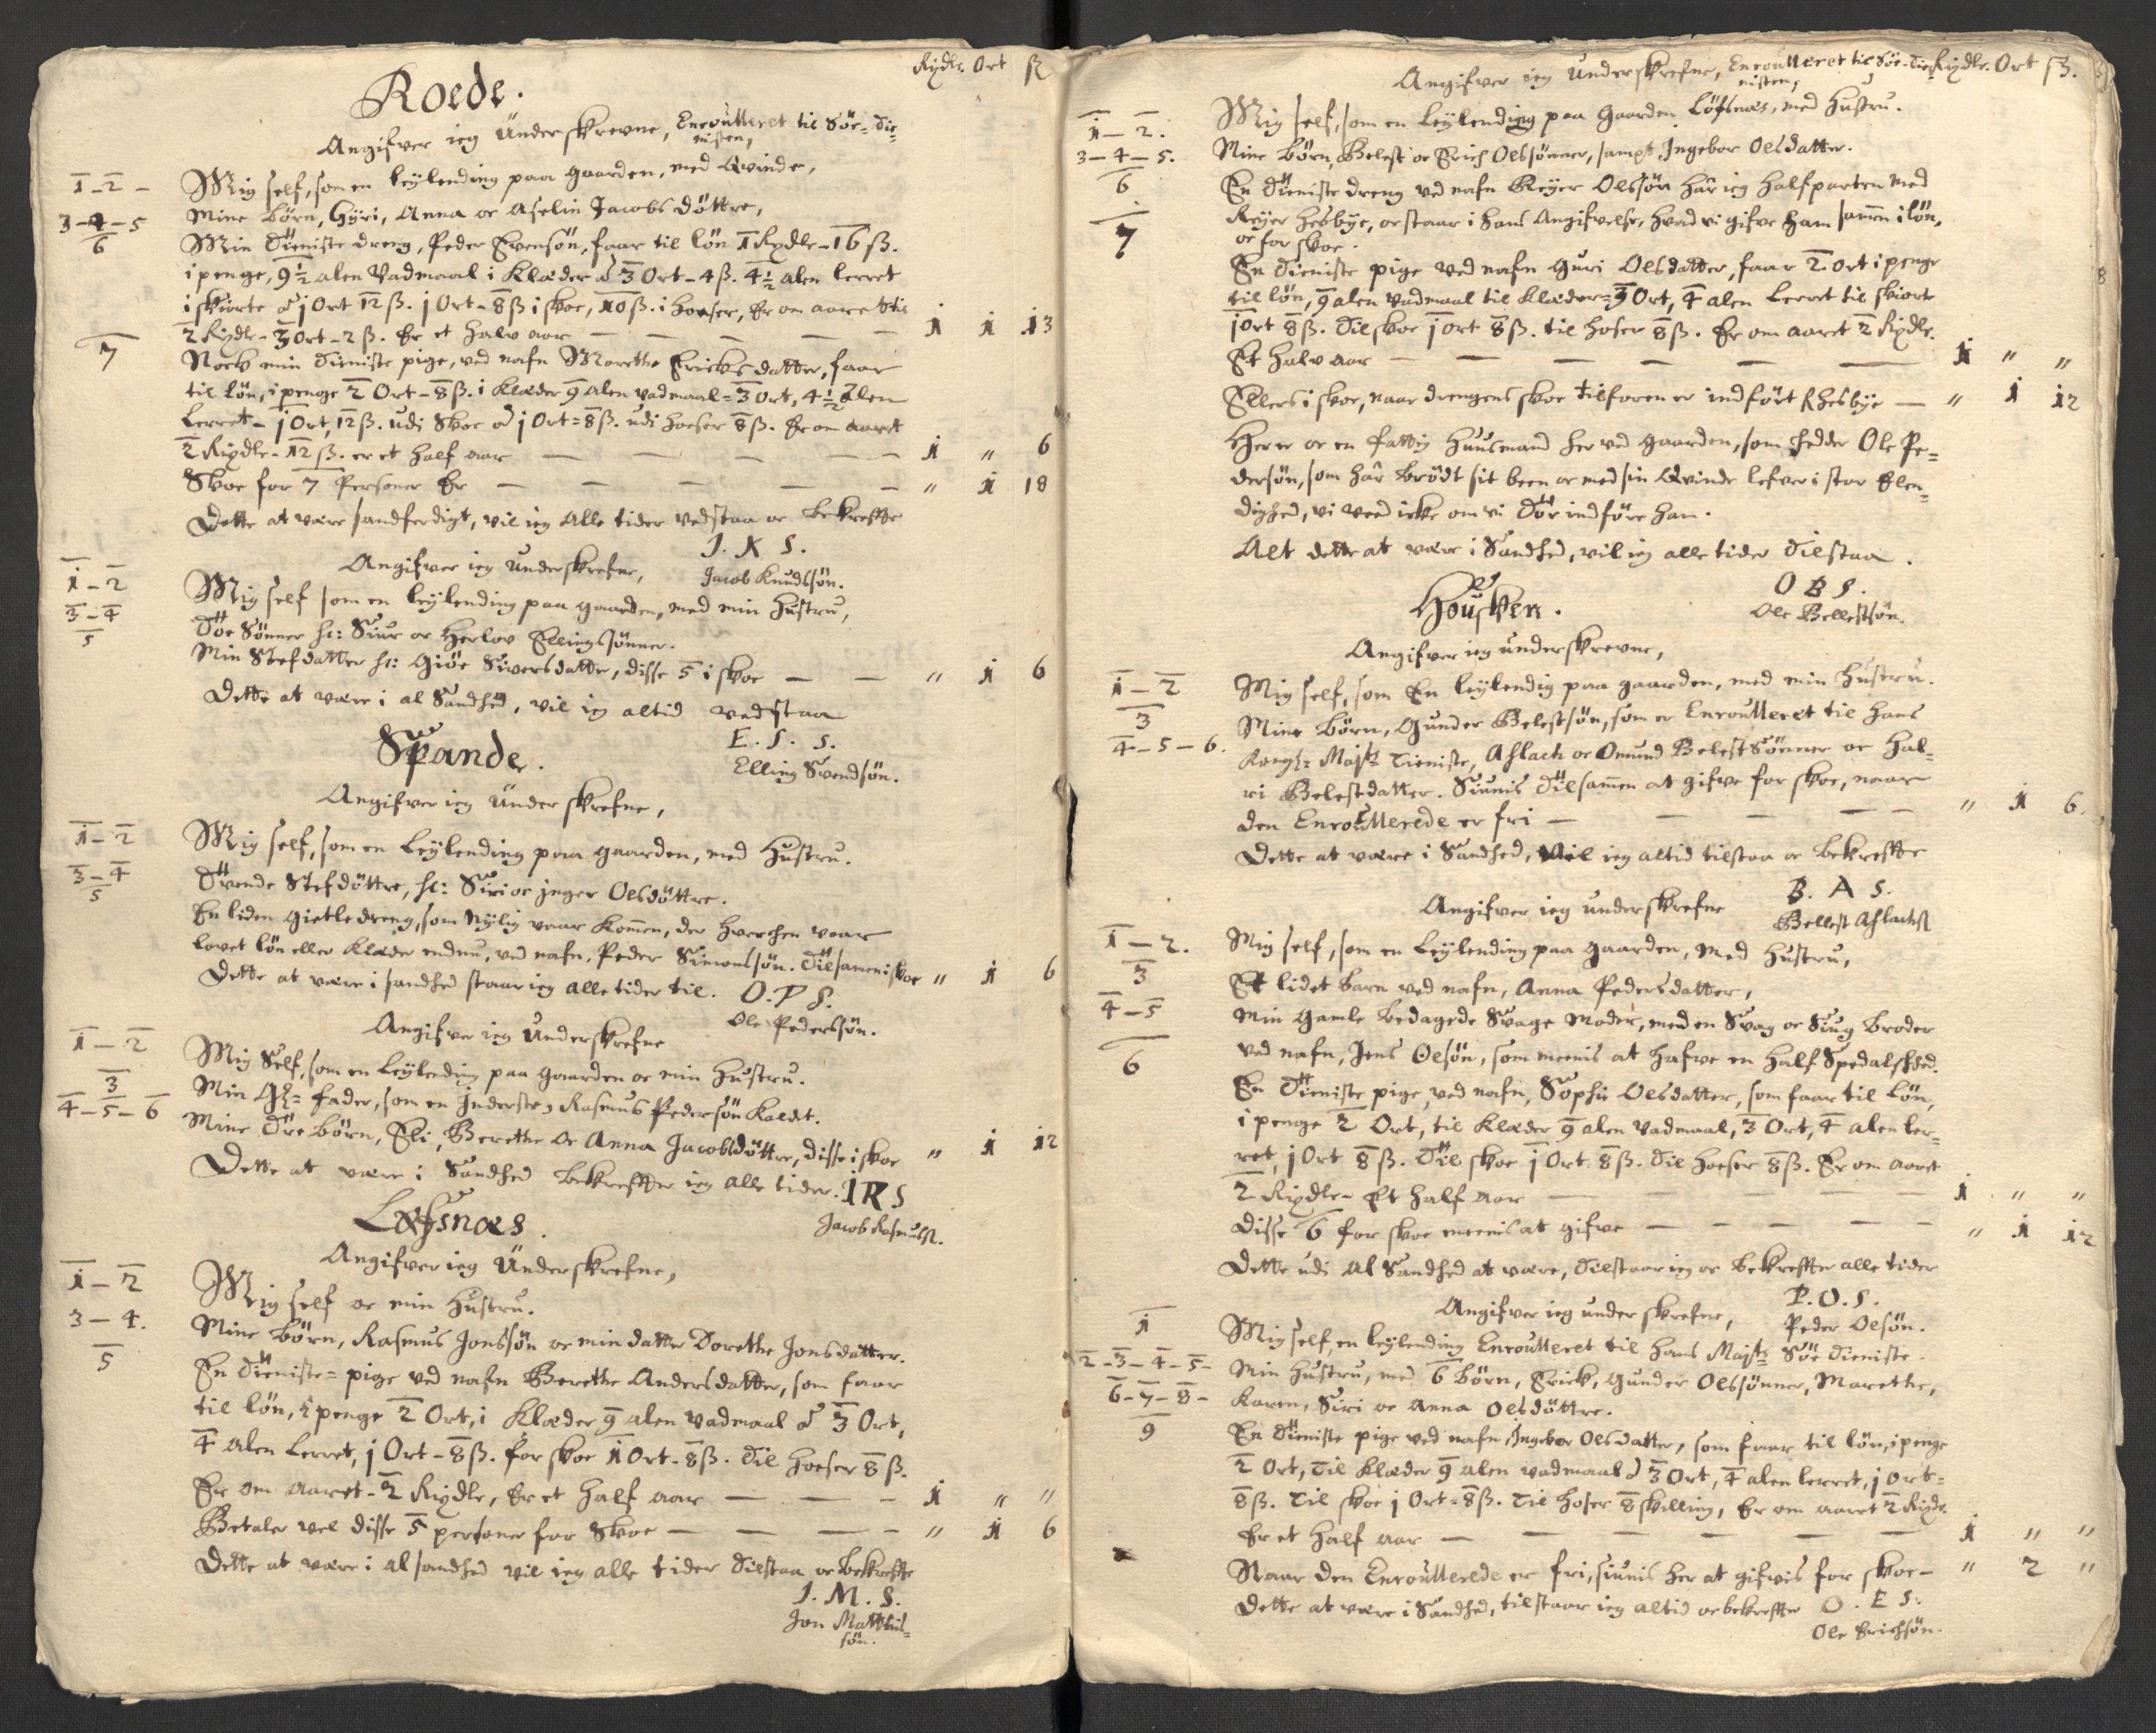 Rixdlr. Ort ß
Roede.
Angifver ieg Underskrevne, Enroulleret til Söe-Tie-
nisten,
1-2- Mig self, som en leylending paa gaarden, med Qvinde,
3-4-5 Mine börn, Gyri, Anna oc Aselin Jacobs döttre,
6 Min Tieniste dreng, Peder Evensön, faar til lön 1 Rixdlr-16 ß.
i penge, 9½ alen Vadmaal i Klæder à 3 Ort-4 ß. 4½ alen lerret
i skiorte à 1 Ort 12 ß. 1 Ort-8 ß i skoe, 10 ß. i hoeser, Er om aaret
2 Rixdlr-3 Ort-2 ß. Er et halv aar — — — — 1 1 13
7 Nock min Tieniste pige, ved nafn Marethe Ericksdatter, faar
til lön, i penge 2 Ort-8 ß. i Klæder 9 alen vadmaal=3 Ort, 4½ Alen
Lerret-1 Ort, 12 ß. udi Skoe à 1 Ort=8 ß. udi hoeser 8 ß. Er om aaret
2 Rixdlr-12 ß. er et half aar — — — — 1 " 6
Skoe for 7 Personer Er — — — — " 1 18
Dette at være sandferdigt, vil ieg alle tider vedstaa oc bekreffte
J. K S.
Angifver ieg Underskrefne, Jacob Knudssön.
1-2 Mig self som en leylending paa gaarden, med min Hustru,
3-4 Töe Sönner hr: Siur oc Herlov Ellingssönner.
5 Min Stefdatter hr: Giöe Siversdatter, disse 5 i skoe — — " 1 6
Dette at være i al Sandhed, vil ieg altid vedstaa
E. S. S.
Spande. Elling Svendsön.
Angifver ieg Underskrefne,
1-2 Mig self, som en Leylending paa gaarden, med Hustru.
3-4 Tvende Stefdöttre, hr: Siri oc Inger Olsdöttre.
5 En liden gietledreng, som Nylig vaar kommen, der hverchen vaar
lovet lön eller Klæder endnu, ved nafn, Peder Simonssön. Tilsamen i skoe " 1 6
Dette at være i sandhed staar ieg alle tider til. O. P S.
Ole Pederssön.
Angifver ieg Underskrefne
1-2 Mig Self, som en Leylending paa gaarden oc min Hustru.
3 Min Gl= fader, som en Inderste, Rasmus Pedersön Kaldet.
4-5-6 Mine Tre börn, Eli, Berethe oc Anna Jacobsdöttre, disse i skoe " 1 12
Dette at være i Sandhed bekreffter ieg alle tider. I R S
Jacob Rasmuss.
Læsnæs.
Angifver ieg Underskrefne,
1-2 Mig self oc min Hustru.
3-4. Mine börn, Rasmus Jonssön oc min datter Dorethe Jonsdatter.
5 En Tieniste=pige ved nafn Berethe Andersdatter, som faar
til lön, i penge 2 Ort, i Klæder 9 alen vadmaal à 3 Ort,
4 alen lerret, 1 Ort-8 ß. for skoe 1 Ort-8 ß. Til hoeser 8 ß.
Er om aaret-2 Rixdlr, Er et half aar — — — 1 " "
Betaler vel disse 5 personer for Skoe — — — " 1 6
Dette at være i al sandhed vil ieg alle tider Tilstaa oc bekreffte
J. M. S.
Jon Matthis=
sön.
Rixdlr. Ort ß.
Angifver ieg Underskrefne, Enroulleret til Söe-Tie-
nisten,
1-2. Mig self, som en Leylending paa gaarden Löfsnæs, med Hustru.
3-4-5. Mine börn, Belest oc Erich Olssönner, sampt Ingebor Olsdatter.
6 En Tieniste dreng ved nafn Reyer Olssön hâr ieg halfparten med
7 Reyer Hesbye, oc staar i hans Angifvelse, hvad vi gifve ham samen i lön,
oc for skoe.
En Tieniste pige ved nafn Guri Olsdatter, faar 2 ort i penge
til lön, 9 alen vadmaal til klæder=3 Ort, 4 alen Lerret til skiorte
1 ort 8 ß. Til skoe 1 ort 8 ß. til hoser 8 ß. Er om aaret 2 Rixdlr.
Et halv aar — — — — — 1 " "
Ellers i skoe, naar drengens skoe tilforen er indfört Rhesbye — " 1 12
Her er oc en fattig huusmand her ved gaarden, som hedder Ole Pe=
dersön, som hâr brödt sit been oc med sin Qvinde lefver i stor Elen=
dighed, vi veed icke om vi Tör indföre ham.
Alt dette at være i Sandhed, vil ieg alle tider Tilstaa.
O B S.
Housken. Ole Bellestsön.
Angifver ieg underskrevne,
1-2 Mig self, som En leylendig paa gaarden, med min Hustru.
3 Mine börn, Gunder Belestsön, som er Enroulleret til Hans
4-5-6. Kongl= Majts Tieniste, Aslach oc Omund Belest Sönner oc Hal=
vi Belestdatter. Siunis Tilsamen at gifve for skoe, naar
den Enroullerede er fri — — — — " 1 6.
Dette at være i Sandhed, vil ieg altid tilstaa oc bekreffte
B. A S.
Angifver ieg underskrefne Bellest Aslachs
1-2. Mig self, som en Leylending paa gaarden, med Hustru,
3 Et lidet barn ved nafn, Anna Pedersdatter,
4-5 Min gamle bedagede svage moder, med en Svag oc Siug broder
6 ved nafn, Jens Olsön, som meenis at hafve en half Spedalshed.
En Tieniste pige, ved nafn, Sophi Olsdatter, som faar til lön,
i penge 2 Ort, til klæder 9 alen Vadmaal, 3 Ort, 4 alen ler=
ret, 1 Ort 8 ß. Til skoe 1 Ort 8 ß. Til hoeser 8 ß. Er om aaret
2 Rixdlr- Et half aar — — — 1 " "
Disse 6 for skoe meenis at gifve — — — — " 1 12
Dette udi al Sandhed at være, Tilstaar ieg oc bekreffter alle tider
P. O. S.
Angifver ieg underskrefne, Peder Olsön.
1 Mig self, en leylending Enroulleret til Hans Majts Söe Tieniste.
2-3-4-5- Min Hustru, med 6 börn, Erick, Gunder Olssönner, Marethe,
6-7-8- Karen, Siri oc Anna Olsdöttre.
9 En Tieniste pige ved nafn Ingebor Olsdatter, som faar til lön, i penge
2 Ort, Til klæder 9 alen vadmaal à 3 Ort, 4 alen lerret, 1 ort=
8 ß. Til skoe 1 Ort=8 ß. Til hoser 8 skilling, Er om aaret 2 Rixdr.
Er et half aar — — — — — 1 " "
Naar den Enroullerede er fri, siunis her at gifvis for skoe- " 2 "
Dette at være i Sandhed, tilstaar ieg altid oc bekreffter O. E S.
Ole Erichsön.